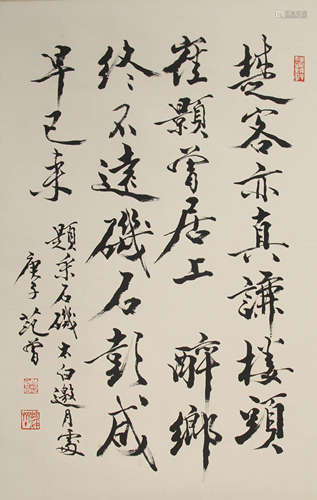 楚客亦真謙樓頭
崔顥曾居上 醉鄉
終不遠磯石彭咸
早已來
題采石磯太白邀月處
庚子范曾